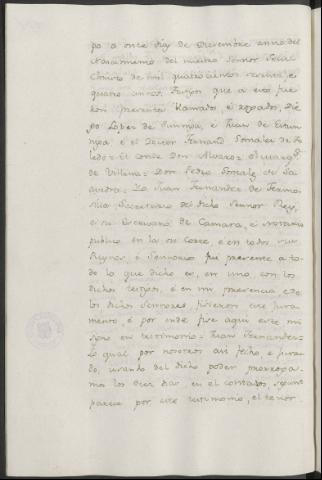 po a once dias de Diciembre anno del
Nascimiento del nuestro Sennor Jesu
Christo de mil quatrocientos sesenta, e
quatro annos. Testigos que a esto fue
ron presentes llamados, e rogados, Die
go Lopez de Zunniga, e Juan de
e el Doctor Fernand Gonzalez de To
ledo = el Conde Don Alvaro = el Marqs.
de Villena = Don Pedro Gonzalez de Sa
avedra = Yo Juan Fernandez de Hermo
silla Secretario del dicho Sennor Rey,
e su Escrivano de Camara, e Notario
publico en la su Corte, e en todos sus
Reynos, e Sennorios fui presente a to
do lo que dicho es, en uno, con los
dichos testigos, e en mi presencia e de
los dichos Sennores ficieron este jura
mento, e por ende fize aqui este mi
signo en testimonio = Juan Fernandez =
Lo qual por nosotros asi fecho, e jura
do, usando del dicho poder prorroga
mos los diez dias, en el contados, segunt
paresce por este testimonio, el tenor